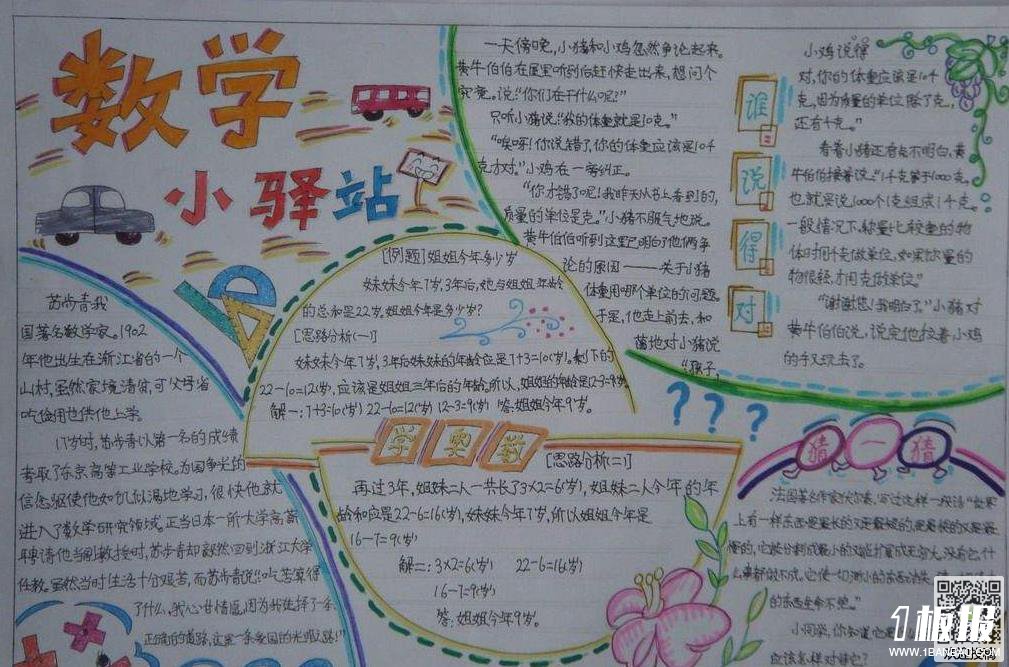 数学
小驿站
苏步青我
国著名数学家。1902
年他出生在浙江省的一个
山村,虽然家境清贫,可父母省
吃俭用也供他上学
17岁时,苏步青以第一名的成绩
考取了东京高等工业学校。为国争光的
信念驱使他如饥似渴地学习,很快他就
进入了数学研究领域。正当日本一所大学高薪
聘请他当副教授时,苏步青却毅然回到浙江大学
任教。虽然当时生活十分艰苦,而苏步青说“吃苦算得
了什么,我心甘情愿,因为我选择了一条
正确的道路,这是一条爱国的光明路!”
[例题]姐姐今年多少岁
妹妹今年7岁,3年后,她与姐姐年龄
的总和是22岁,姐姐今年是多少岁?
[思路分析(一)]
妹妹今年7岁,3年后妹妹的年龄应是7+3=10(岁)。剩下的
22-10=12(岁),应该是姐姐三年后的年龄。所以,姐姐的年龄是12-3=9岁
解一:7+3=10(岁) 22-10=12(岁) 12-3=9(岁) 答:姐姐今年9岁。
学奥数
[思路分析(二)]
再过3年,姐妹二人一共长了3×2=6(岁),姐妹二人今年的年
龄和应是22-6=16(岁),妹妹今年7岁,所以姐姐今年是
16-7=9(岁)
解二:3×2=6(岁) 22-6=16(岁)
16-7=9(岁)
答:姐姐今年9岁。
一天傍晚,小猪和小鸡忽然争论起来。
黄牛伯伯在屋里听到后赶快走出来,想问个
究竟。说:“你们在干什么呢?”
只听小猪说:“我的体重就是10克。”
“唉呀!你说错了,你的体重应该是10千
克才对。”小鸡在一旁纠正。
“你才错了呢!我昨天从书上看到的,
质量的单位是克。”小猪不服气地说。
黄牛伯伯听到这里已明白了他俩争
论的原因——关于小猪
体重用哪个单位的问题。
于是,他走上前去,和
蔼地对小猪说
“孩子,
谁说得对
小鸡说得
对,你的体重应该是10千
克,因为质量的单位除了克,
还有千克。”
看着小猪还有点不明白,黄
牛伯伯接着说:“1千克等于1000克,
也就是说1000个1克组成1千克。
一般情况下,称量比较重的物
体时用千克做单位,如果称量的
物很轻,才用克做单位。”
“谢谢您!我明白了。”小猪对
黄牛伯伯说,说完他拉着小鸡
的手又玩去了。
???
猜一猜
法国著名作家伏尔泰,写过这样一段话:“世界
上有一样东西是最长的又是最短的,是最快的又是最
慢的,它能分割成最小的又能扩展成无穷大,没有它什
么事都做不成,它使一切渺小的东西消失
的东西生命不绝。”
小同学,你知道它是
应该怎样对待它?
1板报
WWW.1BANBAO.COM